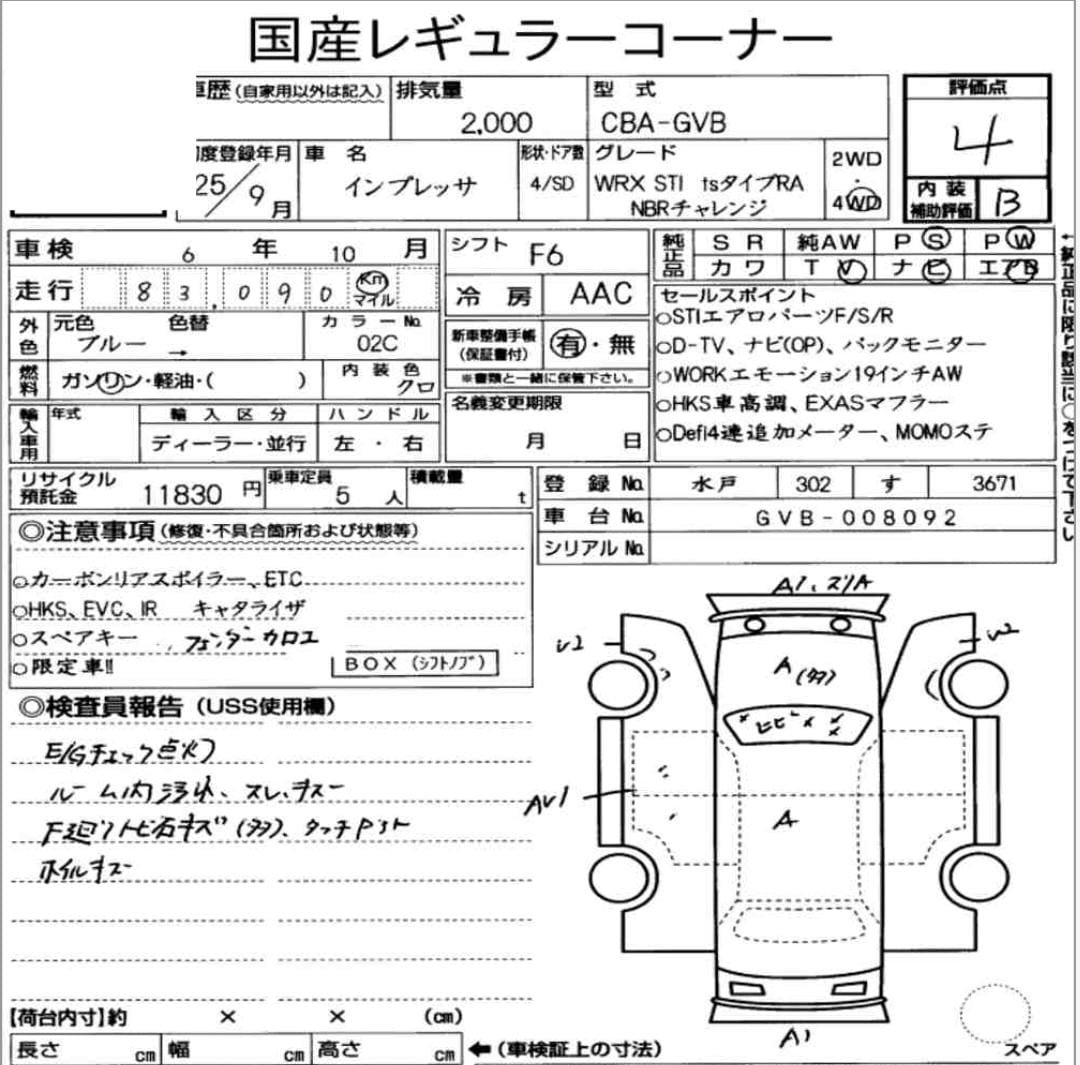 国産レギュラーコーナー
車歴(自家用以外は記入) 排気量 型式 評価点
2,000 CBA-GVB 4
初度登録年月 車名 形状・ドア数 グレード 2WD
25/9月 インプレッサ 4/SD WRX STI tsタイプRA ・ 内装
NBRチャレンジ 4WD 補助評価 B
車検 6年 10月 シフト F6 純正品 SR 純AW PS PW
走行 83,090 Km マイル 冷房 AAC カワ TV ナビ エアB
←純正品に限り該当に○をつけて下さい
外色 元色 色替 カラーNo. 新車整備手帳 有・無 セールスポイント
ブルー → 02C (保証書付) ○STIエアロパーツF/S/R
※書類と一緒に保管下さい。 ○D-TV、ナビ(OP)、バックモニター
燃料 ガソリン・軽油・( ) 内装色 クロ ○WORKエモーション19インチAW
輸入車用 年式 輸入区分 ハンドル 名義変更期限 ○HKS車高調、EXASマフラー
ディーラー・並行 左・右 月 日 ○Defi4連追加メーター、MOMOステ
リサイクル預託金 11830円 乗車定員 5人 積載量 t 登録No. 水戸 302 す 3671
車台No. GVB-008092
シリアルNo.
◎注意事項(修復・不具合箇所および状態等)
○カーボンリアスポイラー、ETC
○HKS、EVC、IR キャタライザ
○スペアキー フェンダーカロエ
○限定車!! BOX(シフトノブ)
◎検査員報告(USS使用欄)
E/Gチェック点灯
ルーム内汚れ、スレ、キズー
F廻りトビ石キズ(多)、タッチPント
ホイルキズー
A1、ズリA
U2 U2
A(多)
ヒビ
AU1 A
A1
スペア
【荷台内寸】約 × × (cm)
長さ cm 幅 cm 高さ cm ←(車検証上の寸法)